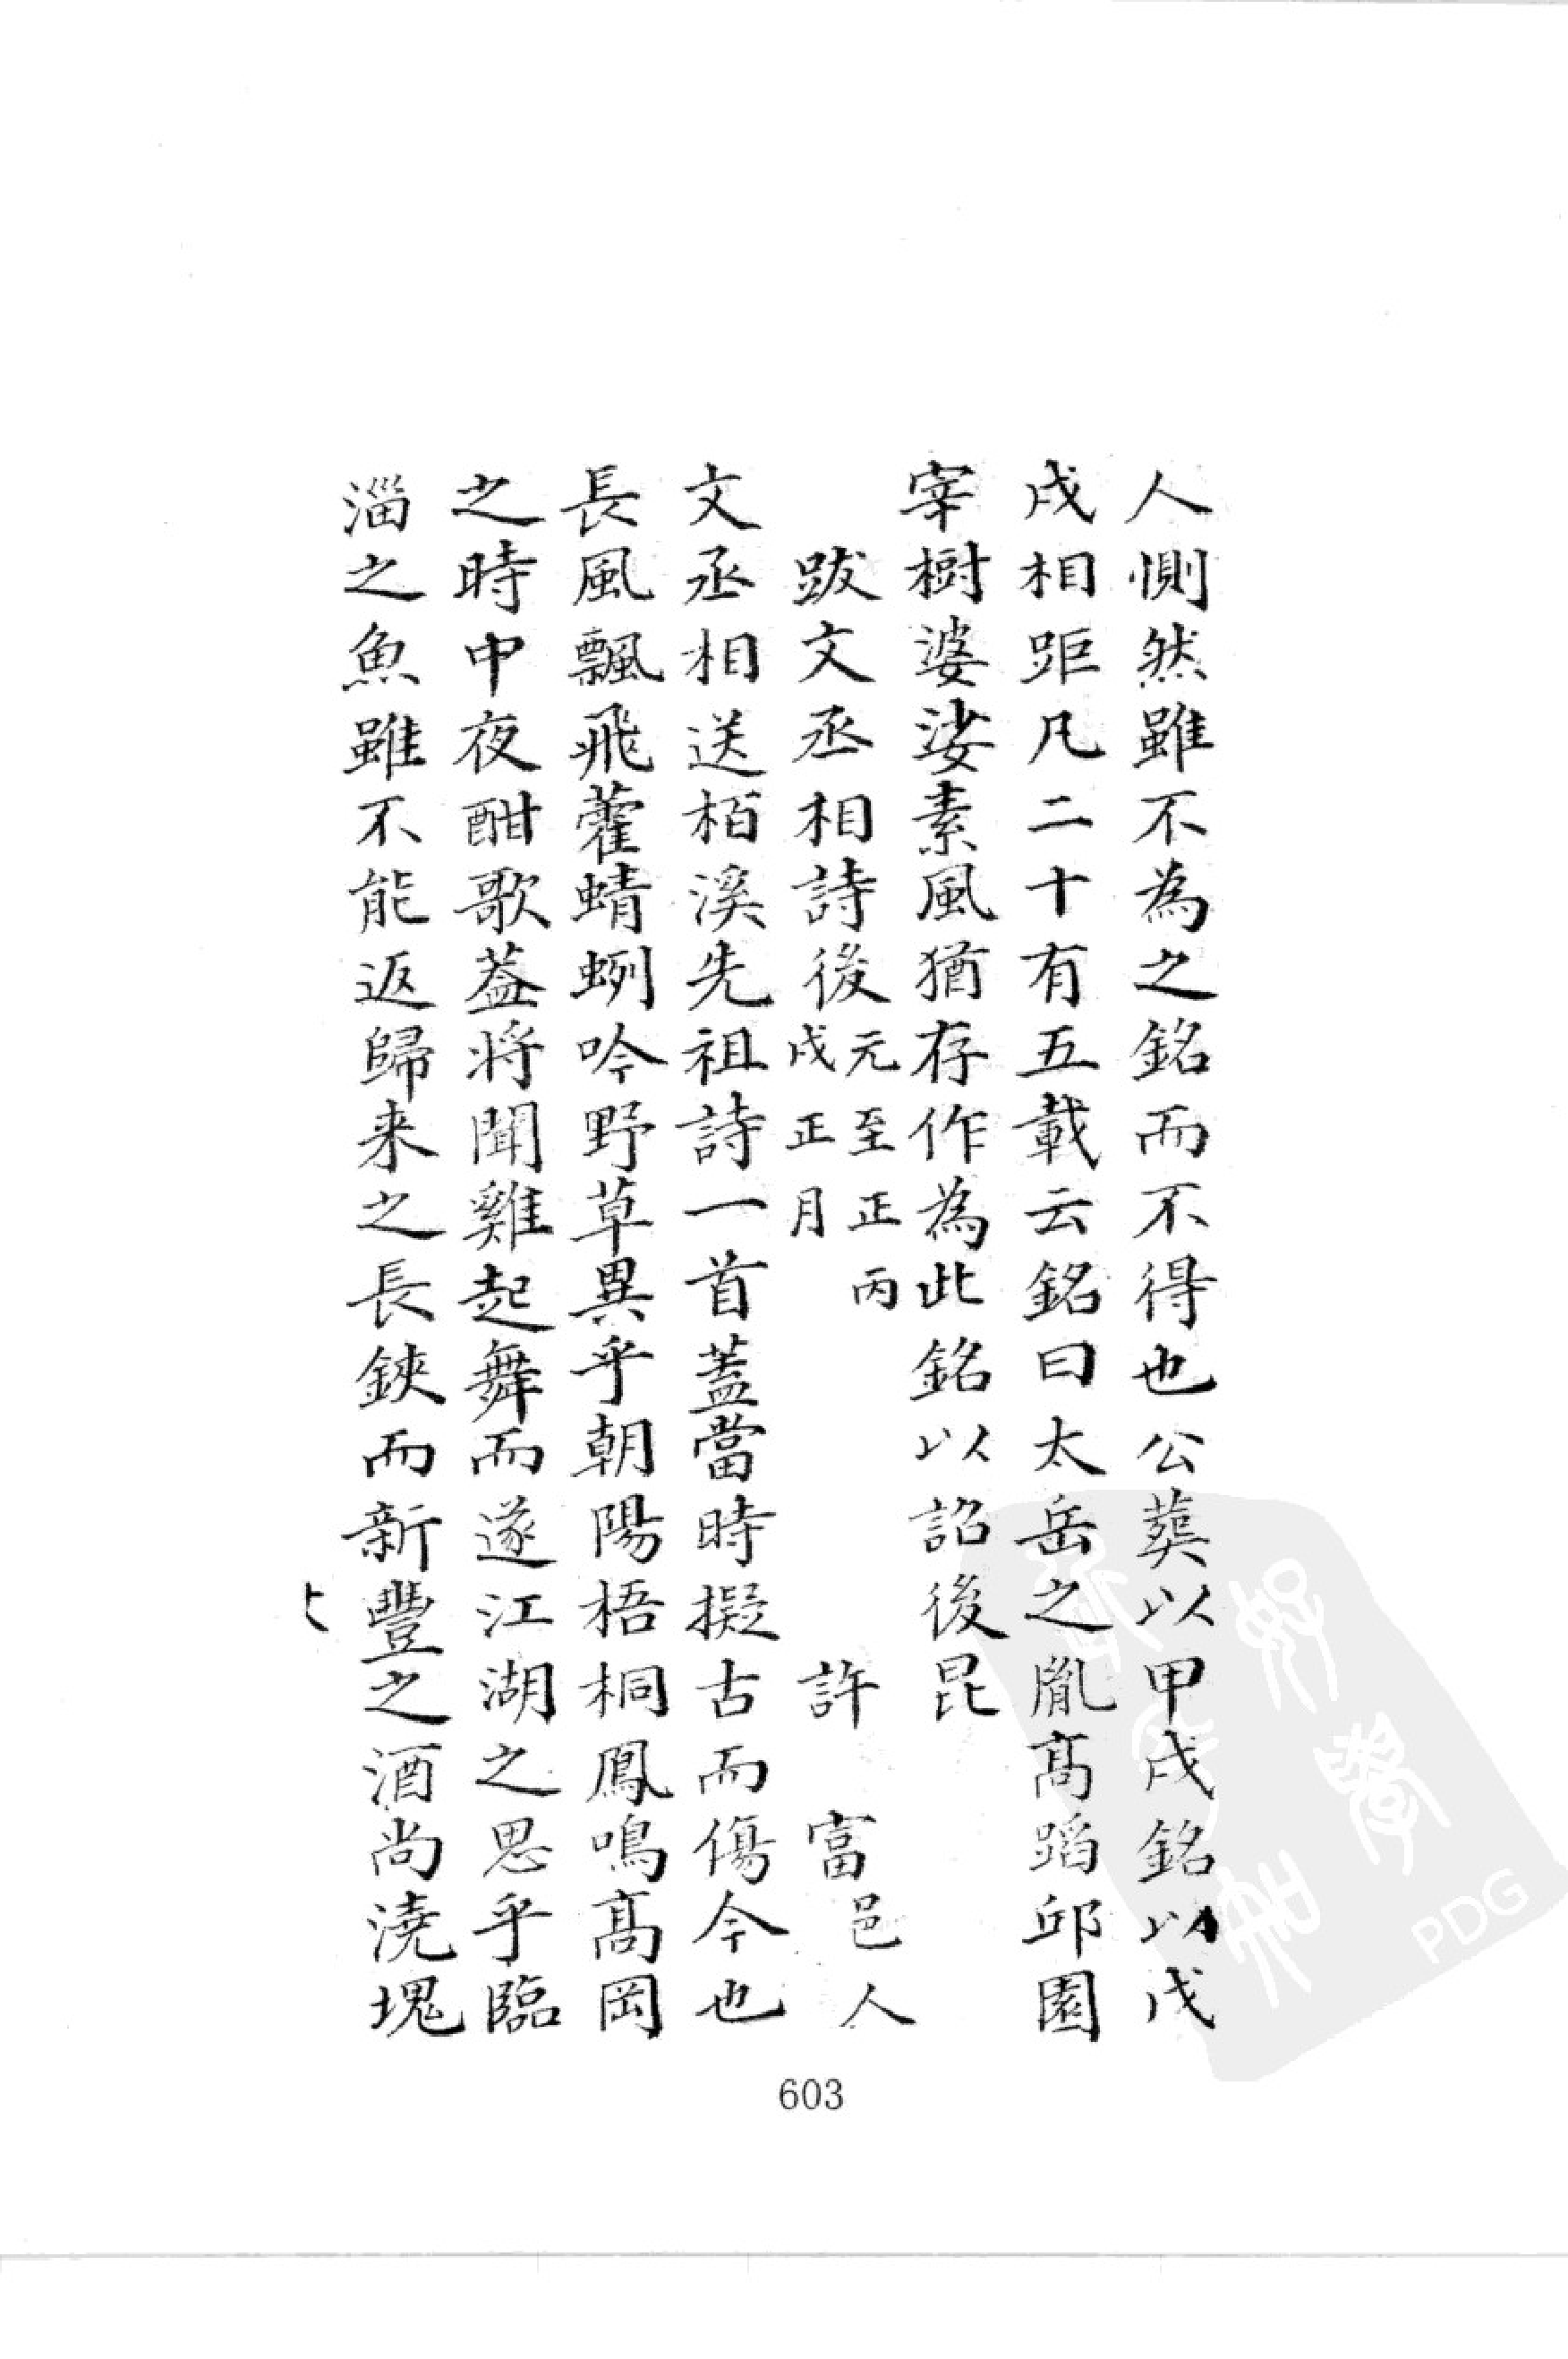 人惻然雖不為之銘而不得也公葬以甲戌銘以戊
戌相距凡二十有五載云銘曰太岳之胤髙蹈邱園
宰樹婆娑素風猶存作為此銘以詔後昆
跋文丞相詩後元至正丙戌正月 許富邑人
文丞相送栢溪先祖詩一首蓋當時擬古而傷今也
長風飄飛藿蜻蛚吟野草異乎朝陽梧桐鳳鳴髙岡
之時中夜酣歌葢将聞雞起舞而遂江湖之思乎臨
淄之魚雖不能返歸来之長鋏而新豐之酒尚澆塊
603
PDG